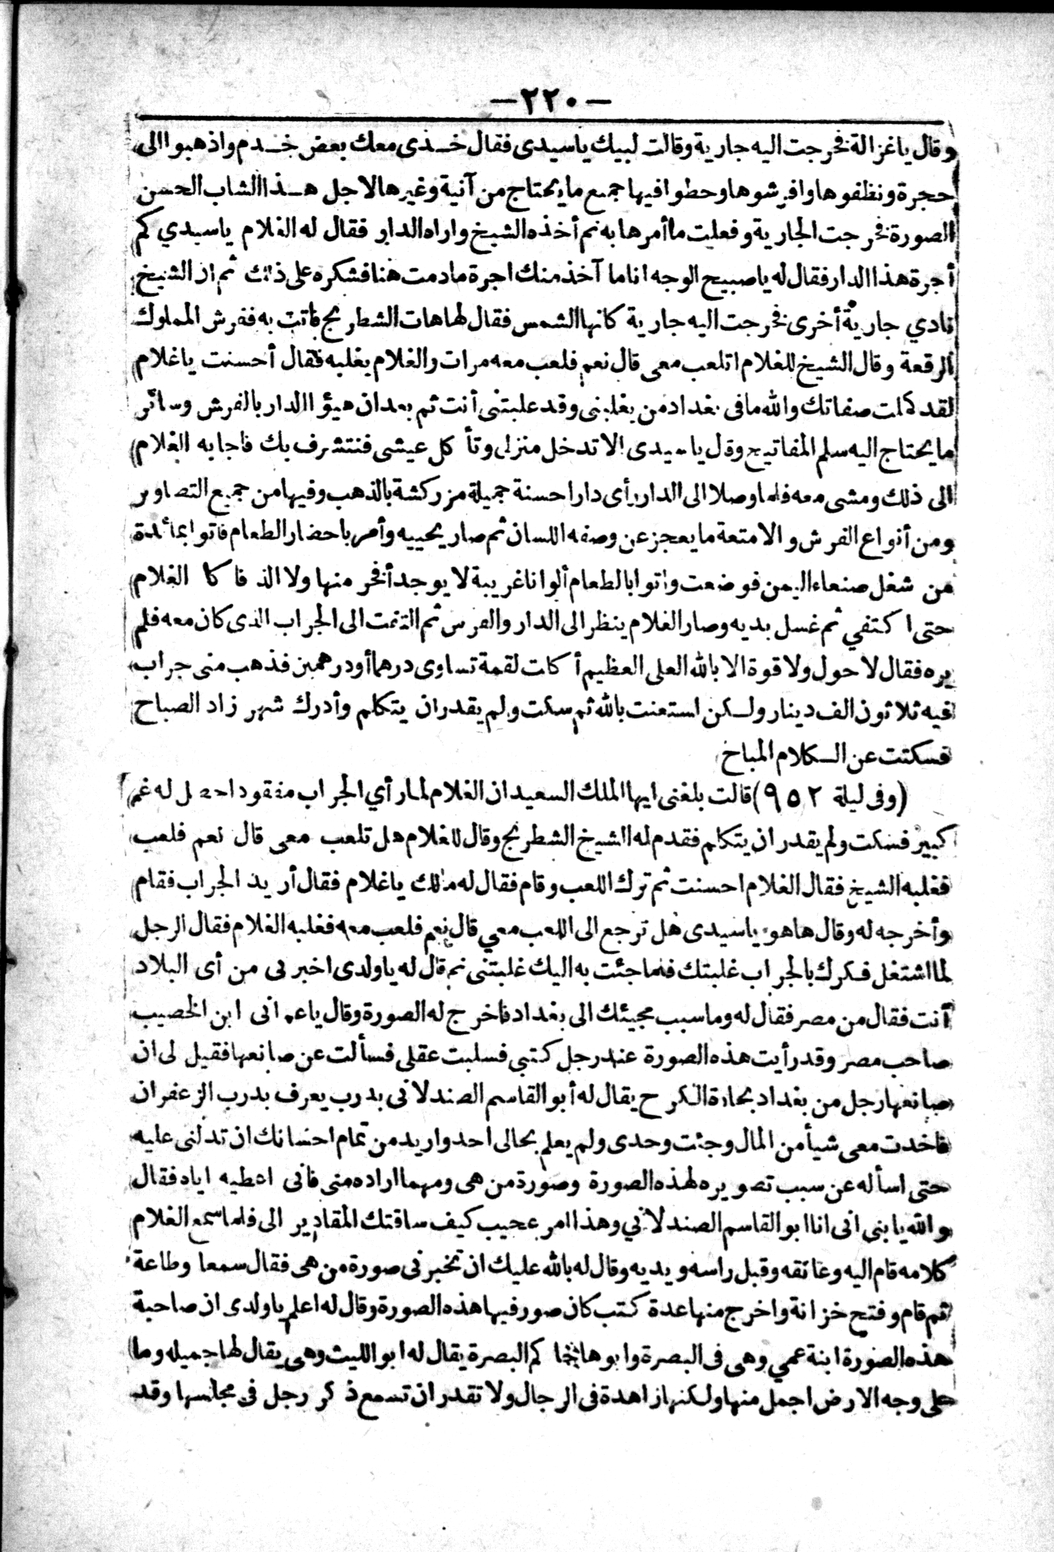 — ٢٢٠ —
وقال ياغزالة فخرجت اليه جارية وقالت لبيك ياسيدى فقال خذى معك بعض خدم واذهبوا الى
حجرة ونظفوها وافرشوها وحطوا فيها جميع ما يحتاج من آنية وغيرها لاجل هذا الشاب الحسن
الصورة فخرجت الجارية وفعلت ما أمرها به ثم أخذه الشيخ واراه الدار فقال له الغلام ياسيدي كم
أجرة هذا الدار فقال له ياصبيح الوجه انا ما آخذ منك اجرة مادمت هنا فشكره على ذلك ثم ان الشيخ
نادي جارية أخرى فخرجت اليه جارية كانها الشمس فقال لها هات الشطرنج فأتت به ففرش المملوك
الرقعة وقال الشيخ للغلام اتلعب معى قال نعم فلعب معه مرات والغلام يغلبه فقال أحسنت ياغلام
لقد كملت صفاتك والله مافى بغداد من يغلبنى وقد غلبتنى أنت ثم بعد ان هيؤا الدار بالفرش وسائر
ما يحتاج اليه سلم المفاتيح وقال ياسيدى الا تدخل منزلى وتأكل عيشى فنتشرف بك فاجابه الغلام
الى ذلك ومشى معه فلما وصلا الى الدار رأى دارا حسنة جميلة مزركشة بالذهب وفيها من جميع التصاوير
ومن أنواع الفرش والامتعة ما يعجز عن وصفه اللسان ثم صار يحييه وأمر باحضار الطعام فاتوا بمائدة
من شغل صنعاء اليمن فوضعت واتوا بالطعام ألوانا غريبة لا يوجد أفخر منها ولا الذ فاكل الغلام
حتى اكتفي ثم غسل يديه وصار الغلام ينظر الى الدار والفرش ثم التفت الى الجراب الذى كان معه فلم
يره فقال لا حول ولا قوة الا بالله العلى العظيم أكلت لقمة تساوى درهما أو درهمين فذهب منى جراب
فيه ثلاثون الف دينار ولكن استعنت بالله ثم سكت ولم يقدر ان يتكلم وأدرك شهر زاد الصباح
فسكتت عن الكلام المباح
(وفى ليلة ٩٥٢) قالت بلغنى ايها الملك السعيد ان الغلام لما رأي الجراب مفقودا حصل له غم
كبير فسكت ولم يقدر ان يتكلم فقدم له الشيخ الشطرنج وقال للغلام هل تلعب معى قال نعم فلعب
فغلبه الشيخ فقال الغلام احسنت ثم ترك اللعب وقام فقال له مالك ياغلام فقال أريد الجراب فقام
وأخرجه له وقال ها هو ياسيدى هل ترجع الى اللعب معي قال نعم فلعب معه فغلبه الغلام فقال الرجل
لما اشتغل فكرك بالجراب غلبتك فلما جئت به اليك غلبتنى ثم قال له ياولدى اخبرنى من أى البلاد
أنت فقال من مصر فقال له وما سبب مجيئك الى بغداد فاخرج له الصورة وقال ياعم انى ابن الخصيب
صاحب مصر وقد رأيت هذه الصورة عند رجل كتبي فسلبت عقلى فسألت عن صانعها فقيل لى ان
صانعها رجل من بغداد بحارة الكرخ يقال له أبو القاسم الصندلانى بدرب يعرف بدرب الزعفران
فاخدت معى شيأ من المال وجئت وحدى ولم يعلم بحالى احد واريد من تمام احسانك ان تدلنى عليه
حتى اسأله عن سبب تصويره لهذه الصورة وصورة من هى ومهما اراده منى فانى اعطيه اياه فقال
والله يا بنى انى انا ابو القاسم الصندلانى وهذا امر عجيب كيف ساقتك المقادير الى فلما سمع الغلام
كلامه قام اليه وعانقه وقبل راسه ويديه وقال له بالله عليك ان تخبرنى صورة من هى فقال سمعا وطاعة
ثم قام وفتح خزانة واخرج منها عدة كتب كان صور فيها هذه الصورة وقال له اعلم ياولدى ان صاحبة
هذه الصورة ابنة عمي وهى فى البصرة وابوها حاكم البصرة يقال له ابو الليث وهى يقال لها جميله وما
على وجه الارض اجمل منها ولكنها زاهدة فى الرجال ولا تقدر ان تسمع ذكر رجل فى مجلسها وقد